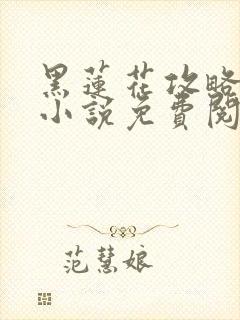 黑蓮花攻略
小說免費閱
范慧娘